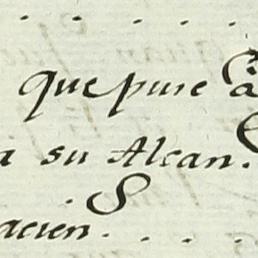 que puse à
a su Alcan.
acien